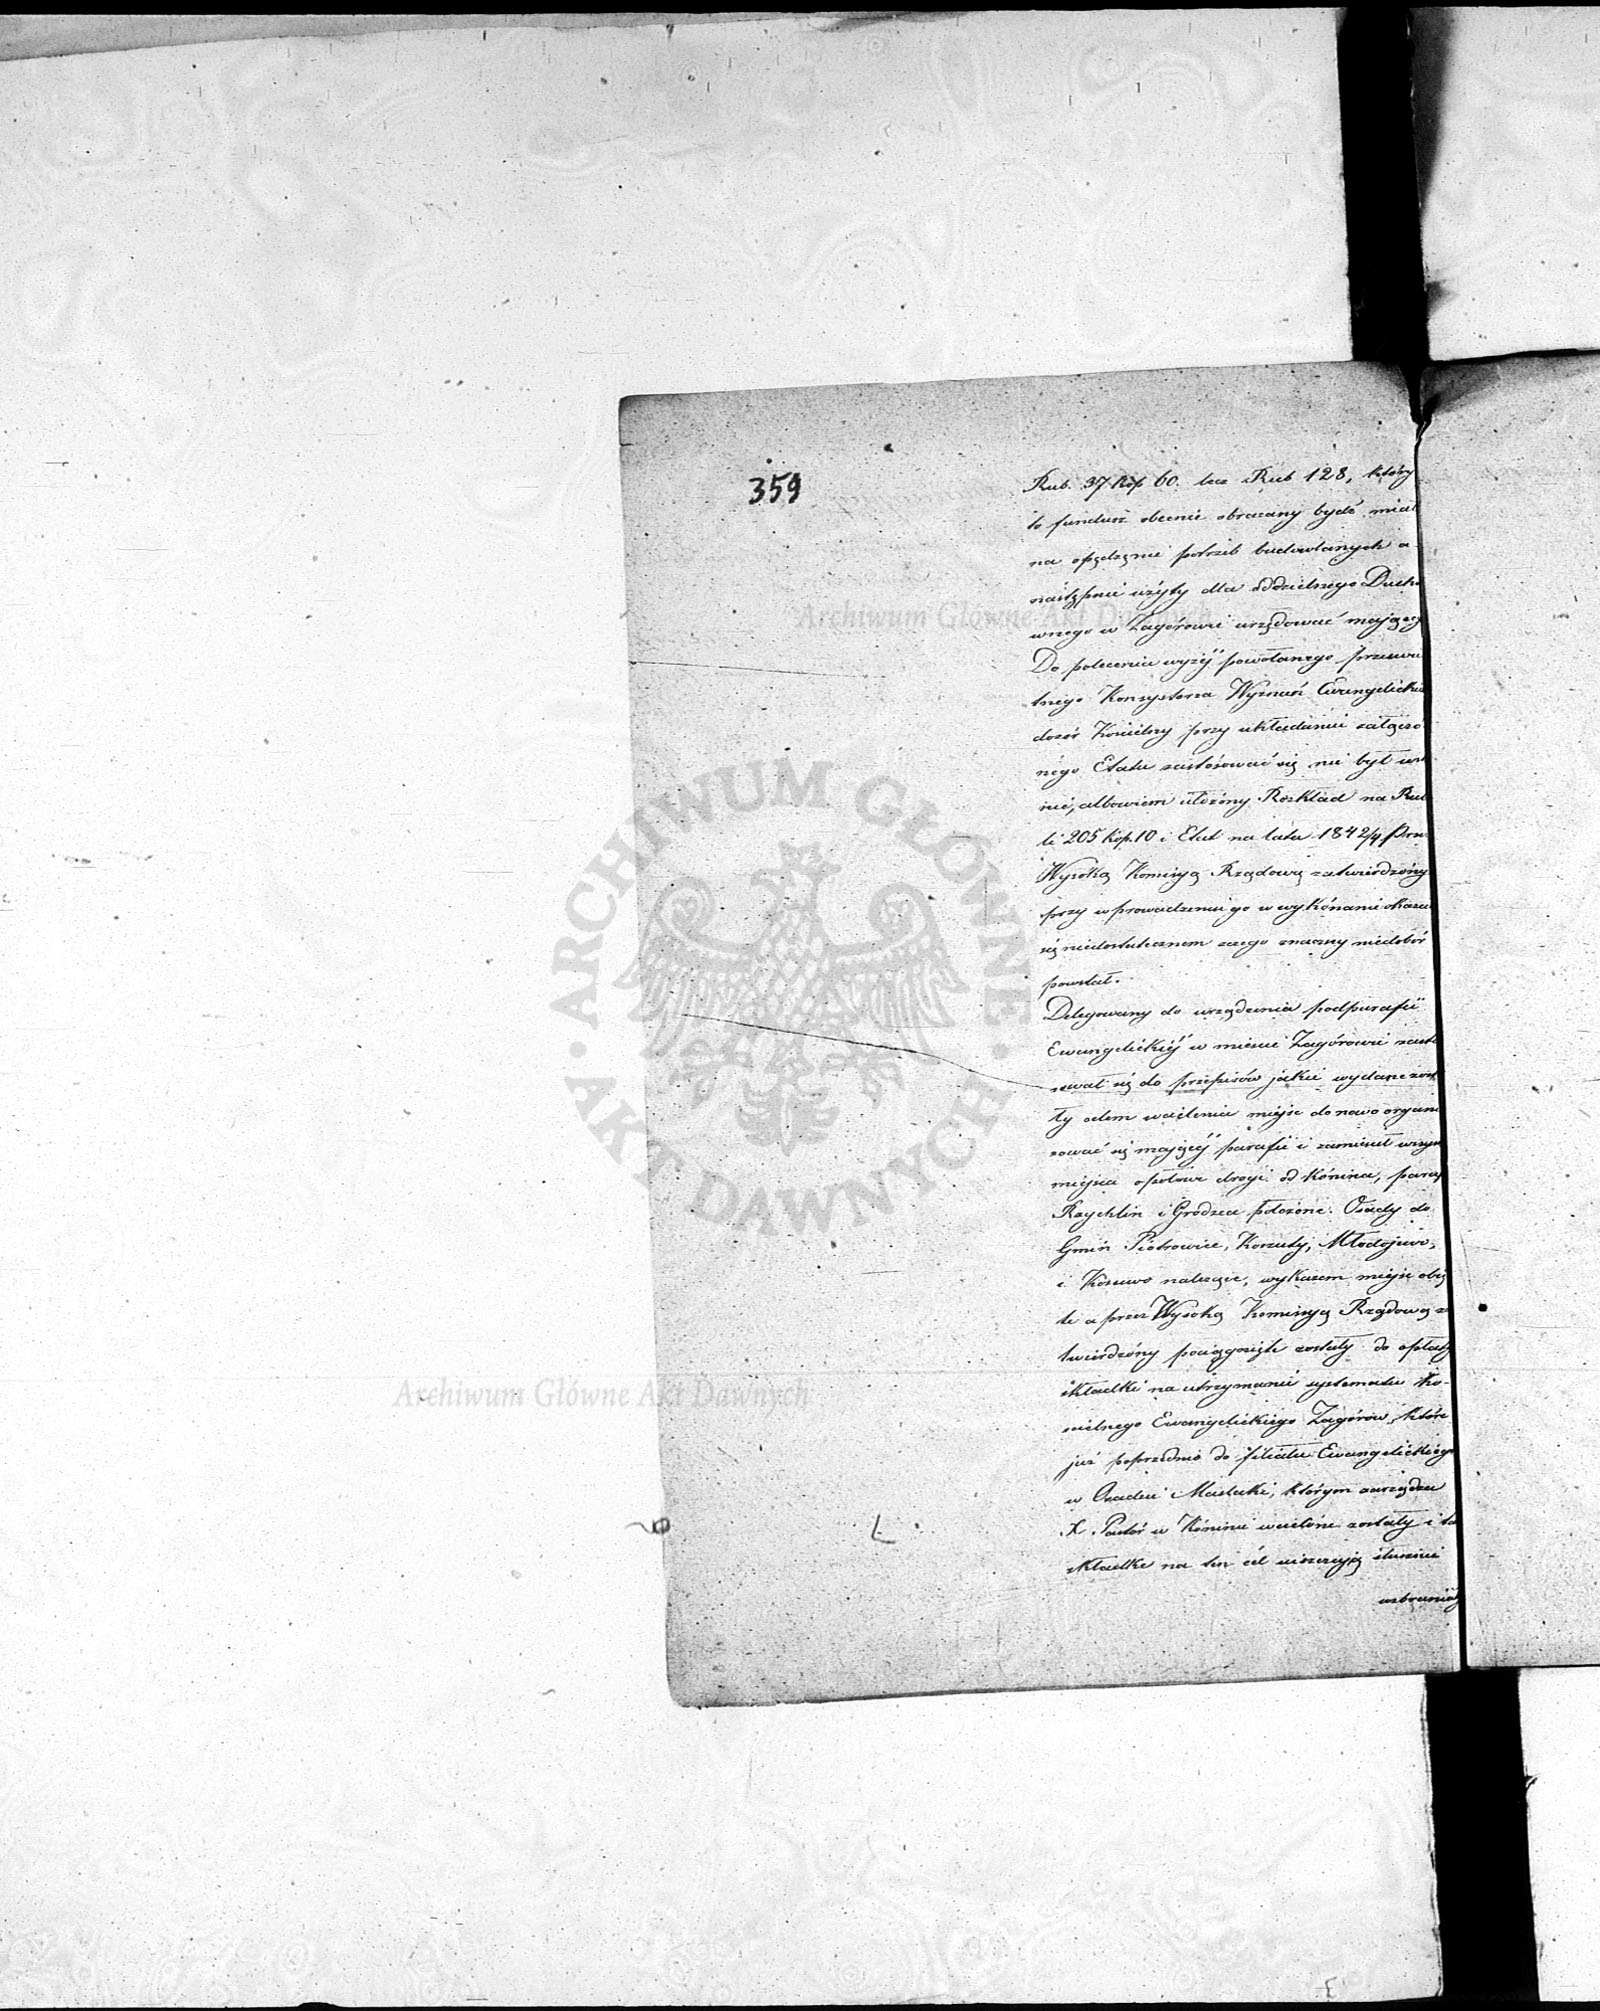 359
Rub. 37 Kop 60. lecz Rub 128, który
to fundusz obecnie obracany bydź miał
na opędzęnie potrzeb budowlanych a
następnie użyty dla oddzielnego Ducho
wnego w Zagórowie urzędować mający
Do polecenia wyżéj powołanego przeswie
tnego Konsystorza Wyznań Ewangelickich
dozór Kościelny przy układaniu załączo
nego Etatu zastósować się nie był w sta
nie, albowiem ułożony Rozkład na Rub
li 205 kop. 10 i Etat na lata 1842/4 przez
Wysoką Komisyą Rządową zatwierdzóny
przy wprowadzeniu go w wykónanie okazał
się niedostatecznem z czego znaczny niedobór
powstał.
Delegowany do urządzenia podparafii
Ewangelickiéj w mieście Zagórowie zasto
sował się do przepisów jakie wydane zosta
ły celem wcielenia miejsc do nowo organi
zować się mającéj parafii i zamieścił wszys
miejsca o połowe drogi od Kónina,
Raychlin i Grodzca położone. Osady do
Gmin Piotrowice, Koszuty, Młodojewo,
i Kosewo należące, wykazem miejsc obję
te a przez Wysoką Komissyą Rządową za
twierdzóny pociągnięte zostały do opłaty
składki na utrzymanie systematu Ko-
ścielnego Ewangelickiego Zagórów, które
już poprzednio do filiału Ewangelickiego
w Osadzie Maślaki, którym zarządza
X. Pastór w Kóninie wcielóne zostały i ta
składke na ten cél uiszczają słusznie
wzbraniały
Archiwum Główne Akt Dawnych
ARCHIWUM GŁÓWNE AKT DAWNYCH
Archiwum Główne Akt Dawnych